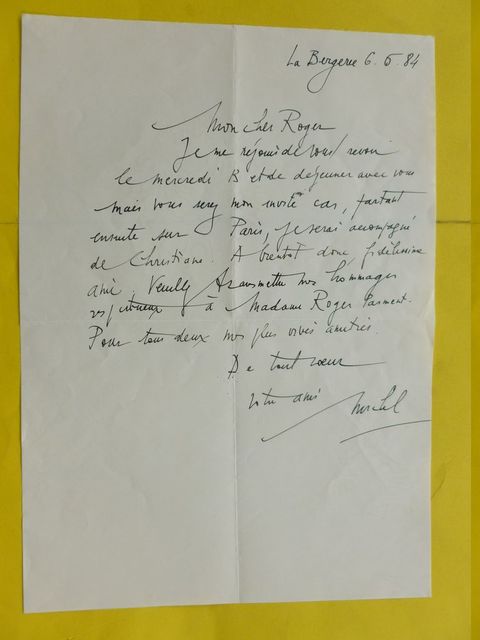 La Bergerie 6. 6. 84
Mon cher Roger
Je me réjouis de vous revoir
le mercredi 13 et de déjeuner avec vous
mais vous serez mon invité car, partant
ensuite sur Paris, je serai accompagné
de Christiane. A bientôt donc fidélissime
ami. Veuillez transmettre nos hommages
respectueux à Madame Roger
Pour tous deux nos plus vives amitiés.
De tout cœur
votre ami Michel